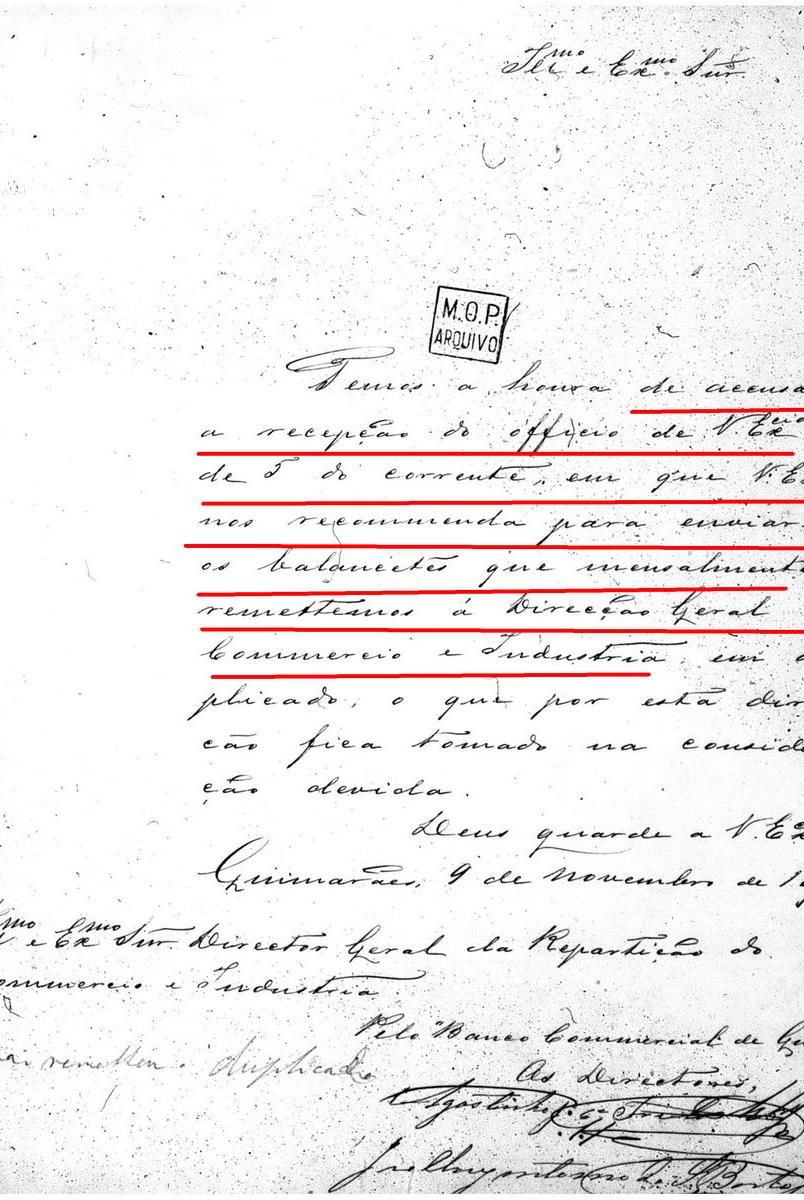 Illmo e Exmo. Snr.
M.O.P.
ARQUIVO
Temos a honra de accusa
a recepção do officio de V. Excia
de 5 do corrente, em que V. E
nos recommenda para enviar
os balancetes que mensalment
remettemos á Direcção Geral
Commercio e Industria, em
plicado, o que por esta dir
ção fica tomado na consid
ção devida.
Deus guarde a V. Ex
Guimarães, 9 de Novembro de 1
mo e Exmo Snr. Director Geral da Repartição do
ommercio e Industria
Pelo "Banco Commercial de Gu
remetter duplicado
Os Directores,
Agostinho